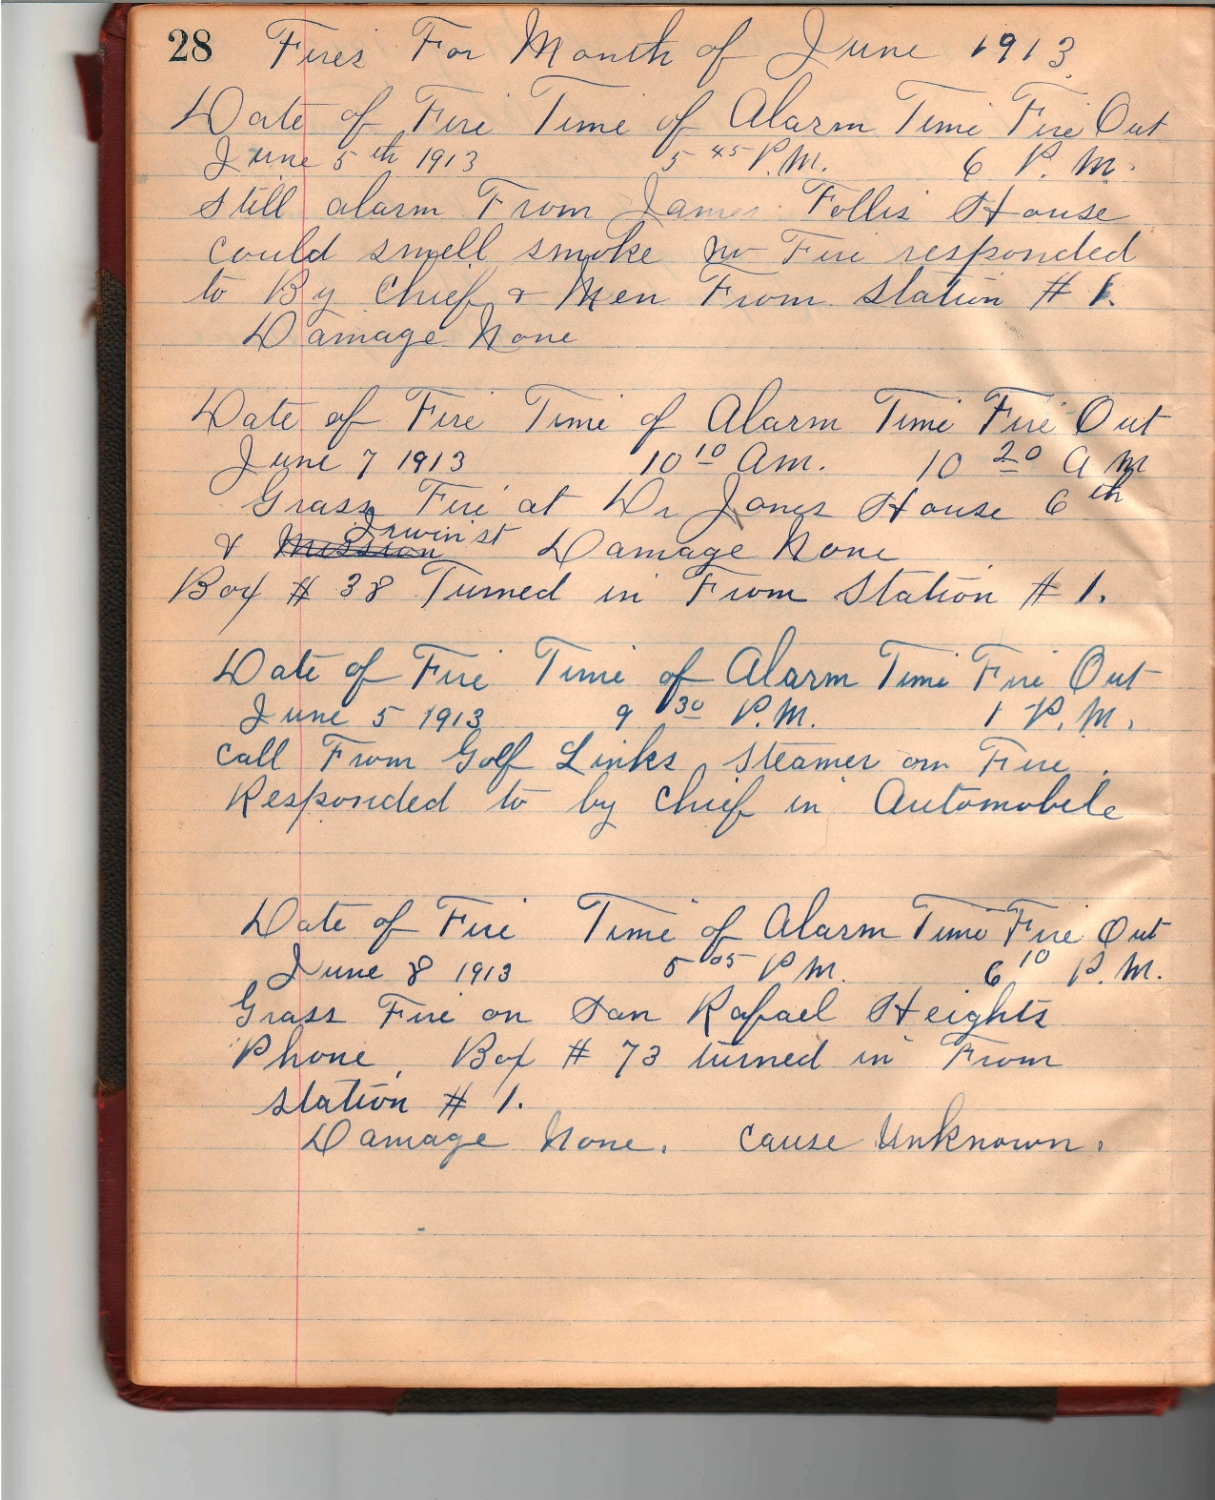 28 Fires For Month of June 1913
Date of Fire Time of Alarm Time Fire Out
June 5th 1913 5 45 P.M. 6 P. M.
Still alarm From James Follis House
could smell smoke no Fire responded
to By Chief & Men From Station # 1.
Damage None
Date of Fire Time of Alarm Time Fire Out
June 7 1913 10 10 Am. 10 20 A M
Grass Fire at Dr Jones House 6th
& Mission Irwin st Damage None
Box # 38 Turned in From Station # 1.
Date of Fire Time of Alarm Time Fire Out
June 5 1913 9 30 P.M. 1 P.M.
call From Golf Links, Steamer on Fire.
Responded to by Chief in Automobile
Date of Fire Time of Alarm Time Fire Out
June 8 1913 5 05 P M. 6 10 P.M.
Grass Fire on San Rafael Heights
Phone, Box # 73 turned in From
Station # 1.
Damage None. Cause Unknown.